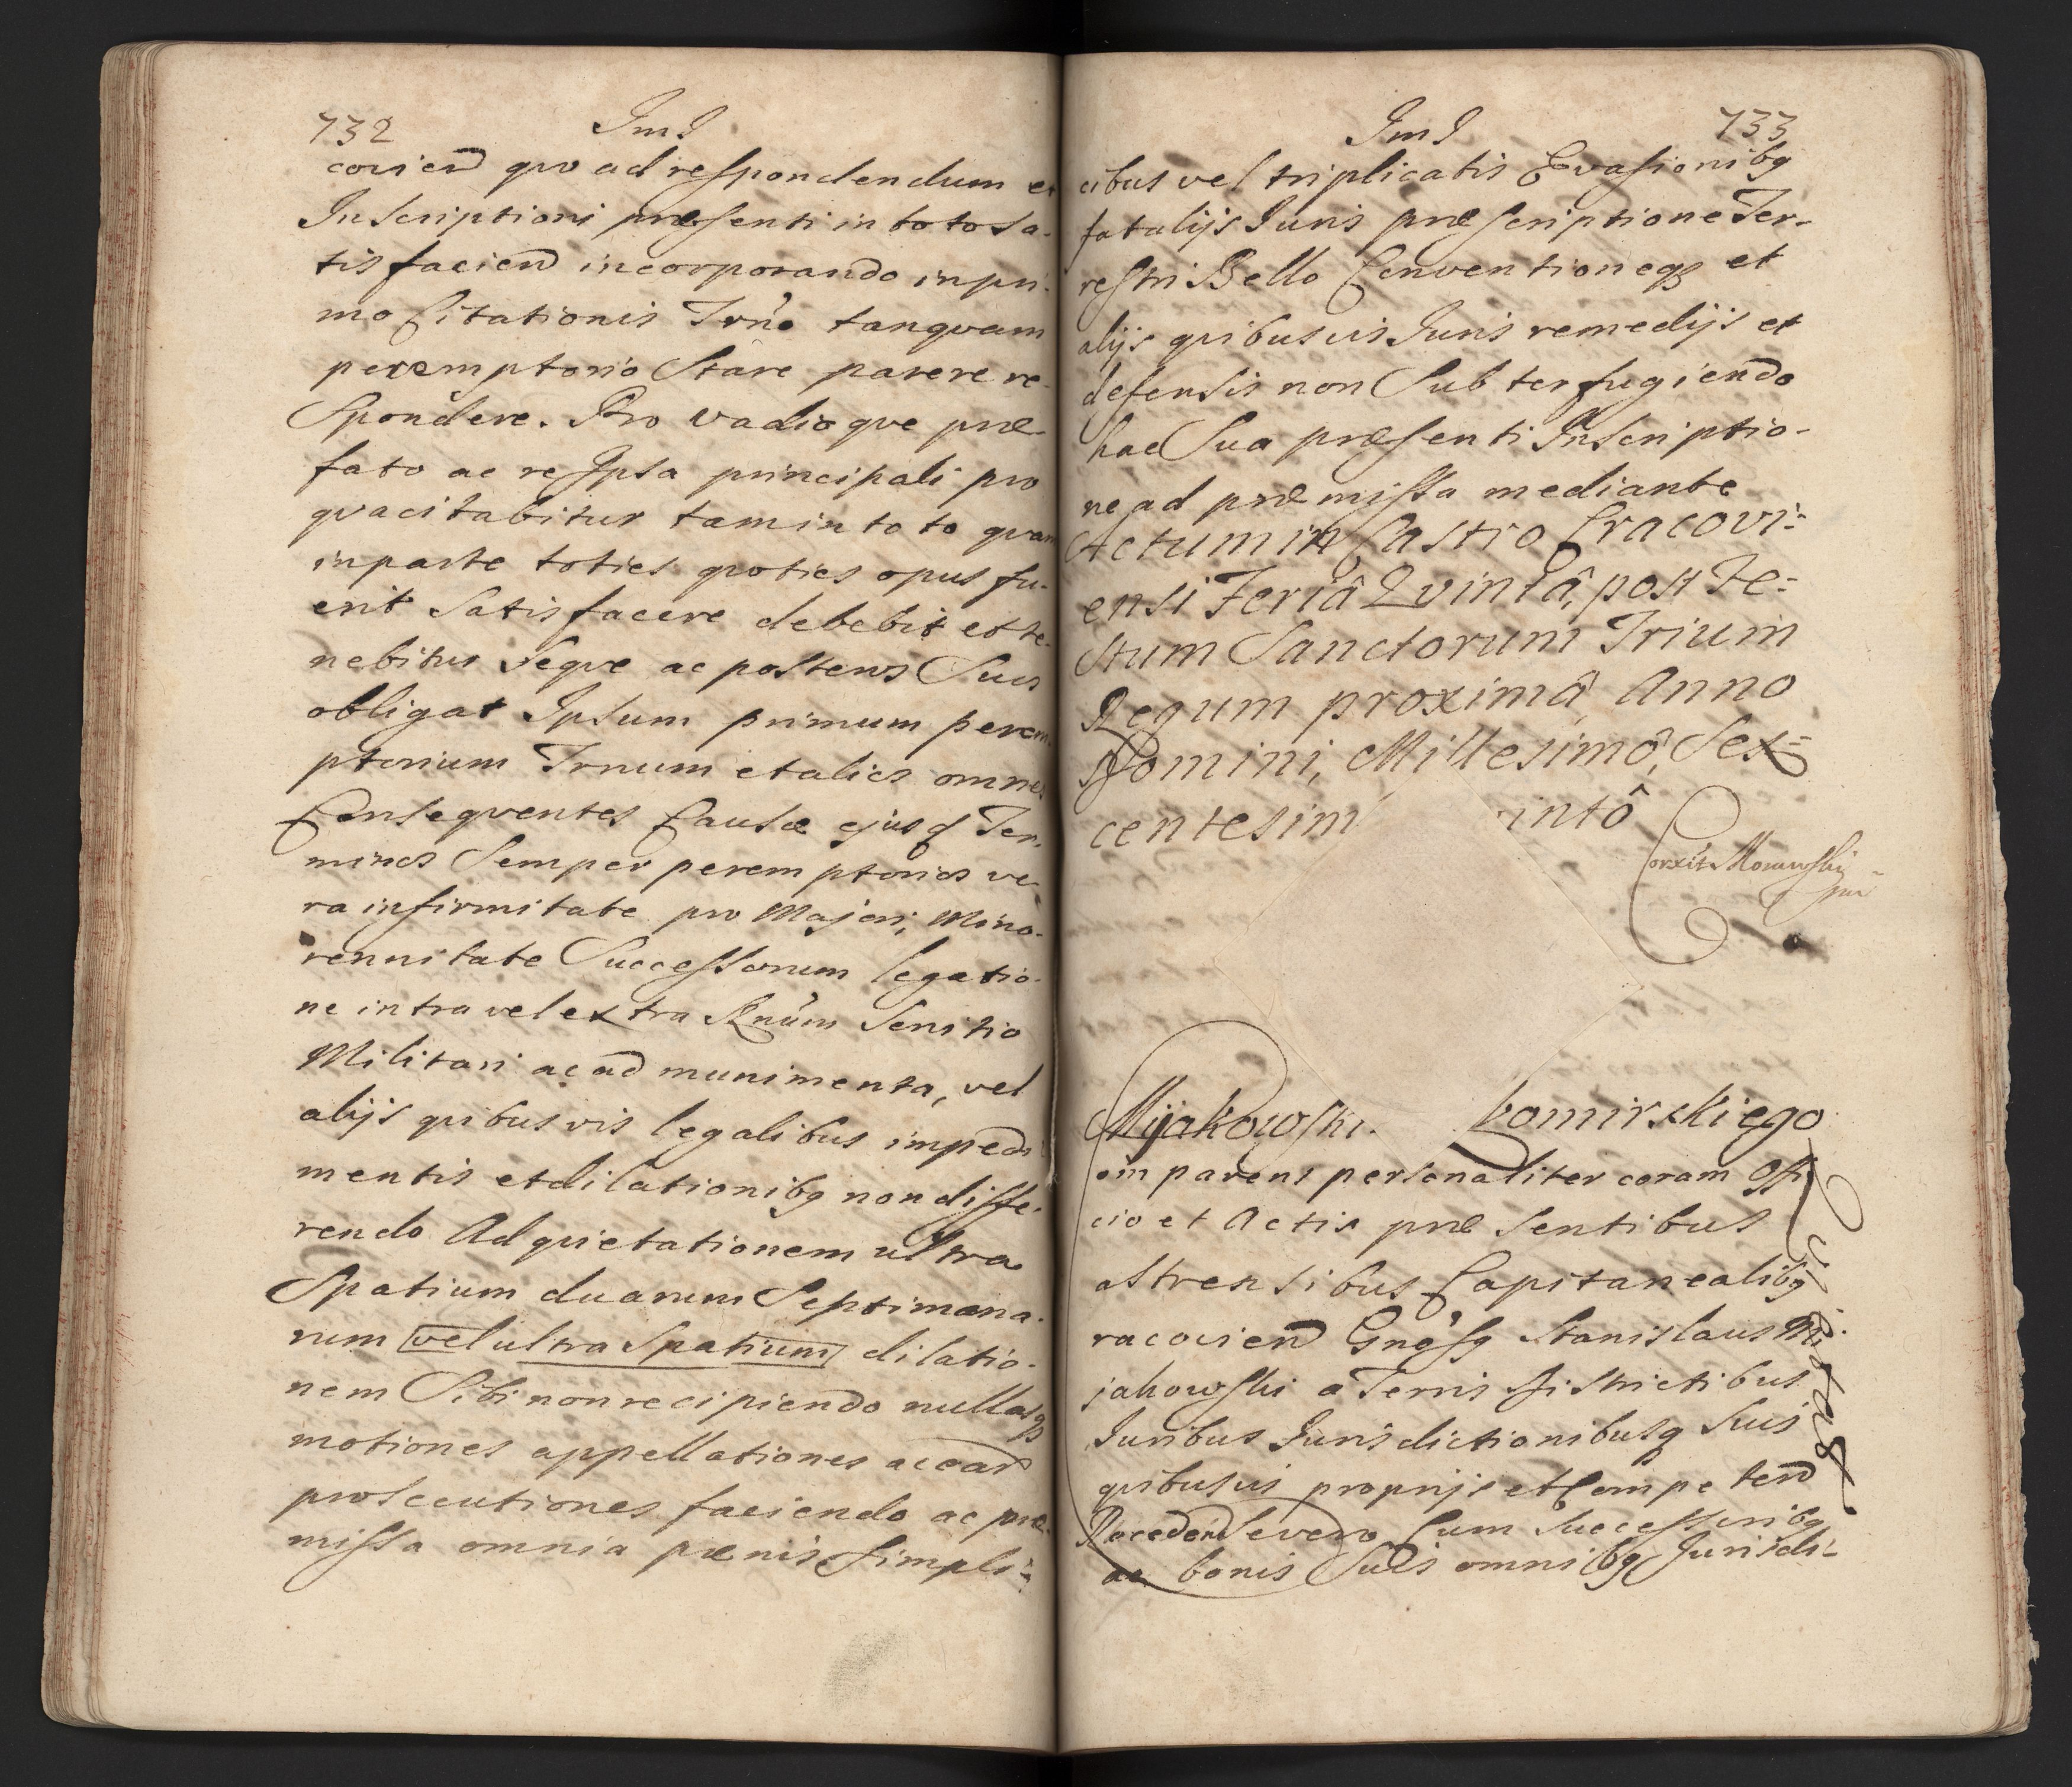 732
ImJ
covien quo ad respondendum et
Inscriptioni præsenti in toto sa-
tis facien incorporando in pri-
mo Citationis Trno tanquam
peremptorio Stare parere re-
Spondere. Pro vadio qve præ
fato ac re Ipsa principali pro
qva citabitur tam in toto quam
in parte toties qvoties opus fu-
erit Satisfacere debebit et te-
nebitur Seqve ac posteros Suos
obligat Ipsum primum perem-
ptorium Trnum et alios omnes
Conseqventes Causæ ejusq Ter-
minos Semper peremptorios ve-
ra infirmitate pro Majori, Mino-
rennitate Successorum legatio-
ne intra vel extra Rnum Servitio
Militari ac ad munimenta, vel
alijs qvibusvis legalibus impedi
mentis et dilationibq non diffe-
rendo Ad qvietationem ultra
Spatium duarum Septimana-
rum vel ultra Spatium dilatio-
nem Sibi non recipiendo nullasq
motiones appellationes ac ear
prosecutiones faciendo ac præ-
missa omnia pænis Simpli-
ImJ
733
cibus vel triplicatis Evasionibq
fatalijs Juris præscriptione Ter-
restri Bello Conventioneq et
alijs qvibusvis Juris remedijs et
defensis non Subterfugiendo
hac Sua præsenti Inscriptio-
ne ad præmissa mediante
Actum in Castro Cracovi-
ensi Feriâ Qvintâ, post Fe-
stum Sanctorum Trium
Regum proximâ, Anno
Domini, Millesimô, Sex-
centesim intô
Corxit Morawski
mp
Mijakowski. bomirskiego
omparens personaliter coram Offi
cio et Actis præsentibus
astrensibus Capitanealibq
racovien Gnosq Stanislaus Mi
jakowski a Terris Districtibus
Juribus Jurisdictionibusq Suis
qvibusvis proprijs et Competen
Recedens Se vero Cum Successoribq
ac bonis Suis omnibq Jurisdi-